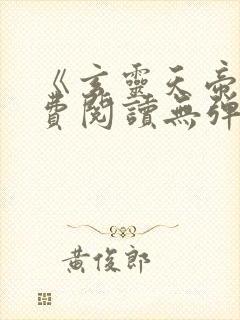 《玄靈天帝
費閱讀無彈
黃俊郎